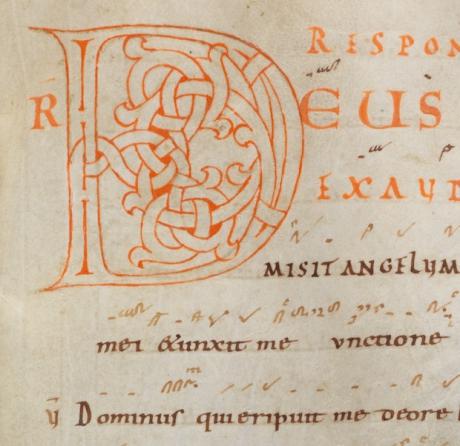 RESPON
R DEUS
EXAUD
MISIT ANGELUM
mei &unxit me unctione
V Dominus qui eripuit me deore